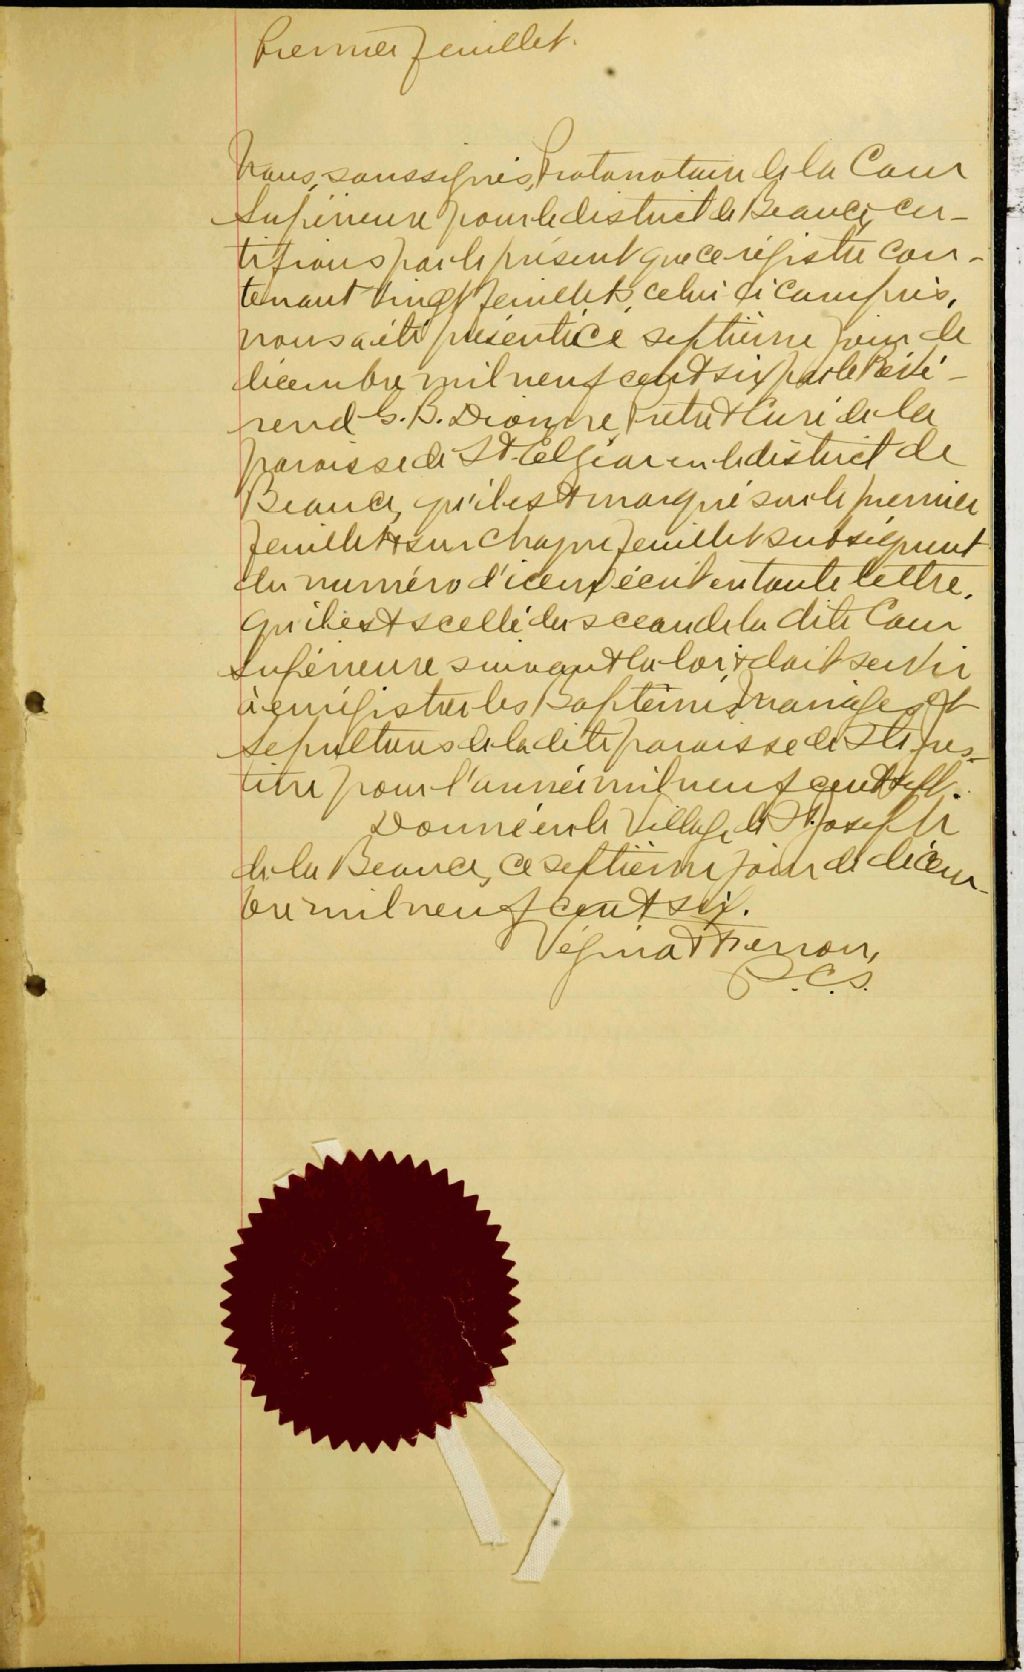 Premier feuillet.
Nous, soussignés, Protonotaire de la Cour
Supérieure pour le district de Beauce, cer-
tifions par le présent que ce régistre con-
tenant vingt feuillets, celui ci compris,
nous a été présenté ce septième jour de
décembre mil neuf cent six par le Révé-
rend G. B. Dionne, Prêtre & Curé de la
paroisse de St Elzéar en le district de
Beauce, qu'il est marqué sur le premier
feuillet & sur chaque feuillet subséquent
du numéro d'iceux écrit en toute lettre,
qu'il est scellé du sceau de la dite Cour
Supérieure suivant la loi & doit servir
à enrégistrer les Baptêmes, mariages et
sépultures de la dite paroisse de
pour l'année mil neuf cent sept.
Donné en le Village de St Joseph
de la Beauce, ce septième jour de décem-
bre mil neuf cent six.
Vézina &
P.C.S.